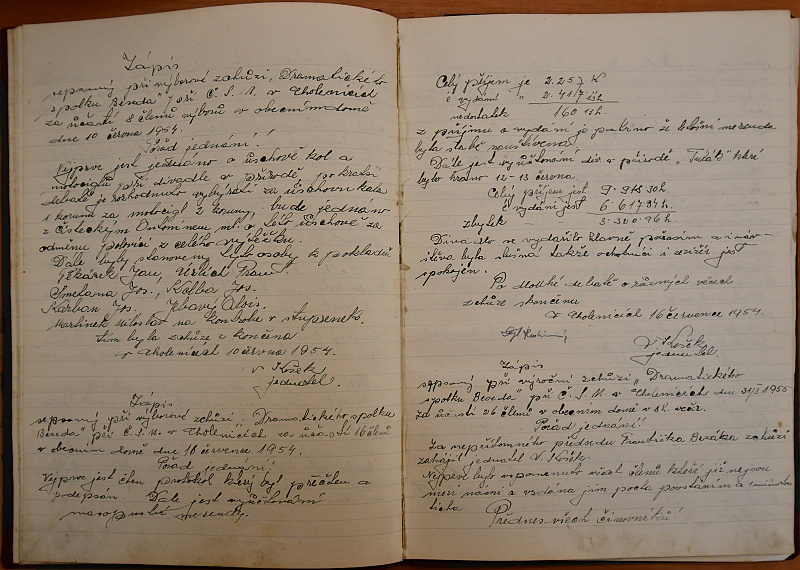 Zápis
sepsaný při výborové schůzi, Dramatického
spolku Beseda" při Č.S.M. v Cholenicích
za účasti 8 členů výboru v obecním domě
dne 10 června 1954.
Pořád jednání!
Nejprve jest jednáno o úschově kol a
motociglů při divadle v přírodě, po kratší
debatě je rozhodnuto vybírati za úschovu kola
1 korunu za motocigl 2 koruny, bude jednáno
z Částeckým Antonínem ml. o tuto úschovu za
odměnu polovici z celého výtěžku.
Dále byly stanoveny tyto osoby k pokladně
Pekárek Jan, Frant
Smetana Jos., Kolba Jos.
Karban Jos. Alois.
Martinek Miloslav na kontrolu v
Tím byla schůze skončena
v Cholenicích 10 června 1954.
V Košek
jednatel.
Zápis
sepsaný při výborové schůzi „Dramatického spolku
Beseda" při Č.S.M. v Cholenicích za účasti 16 členů
v obecním domě dne 16 července 1954.
Pořád jednání!
Nejprve jest čten protokol který byl přečten a
podepsán. Dále jest vyúčtování
masopustní merendy.
Celý příjem je 2.257 K
č vydání " 2.417 h
nedostatek 160 h.
z příjmu a vydání je patrno že letošní merenda
byla slabě navštívena.
Dále jest vyúčtování div. v přírodě „ " které
bylo hráno 12-13 června.
Celý příjem jest 9.918 30h.
č vydání jest 6 617 34h.
zbytek 3.300.96 h.
Divadlo se vydařilo hlavně počasím a náv-
štěva byla slušná takže ochotníci i režižér jest
spokojen.
Po dlouhé debatě o různých věcech
schůze skončena
v Cholenicích 16 července 1954.
V Košek
jednatel.
Zápis
sepsaný při výroční schůzi „Dramatického
spolku Beseda" při Č.S.M. v Cholenicích dne 31/I 1955
za účasti 26 členů v obecním domě v 8 h. večer.
Pořád jednání!
Za nepřítomného předsedu Františka Bezáka schůzi
zahájil jednatel V. Košek.
Nejprve bylo vzpomenuto všech členů kteří již nejsou
mezi námi a vzdána jim pocta povstáním a
ticha
Přednes všech činovníků!